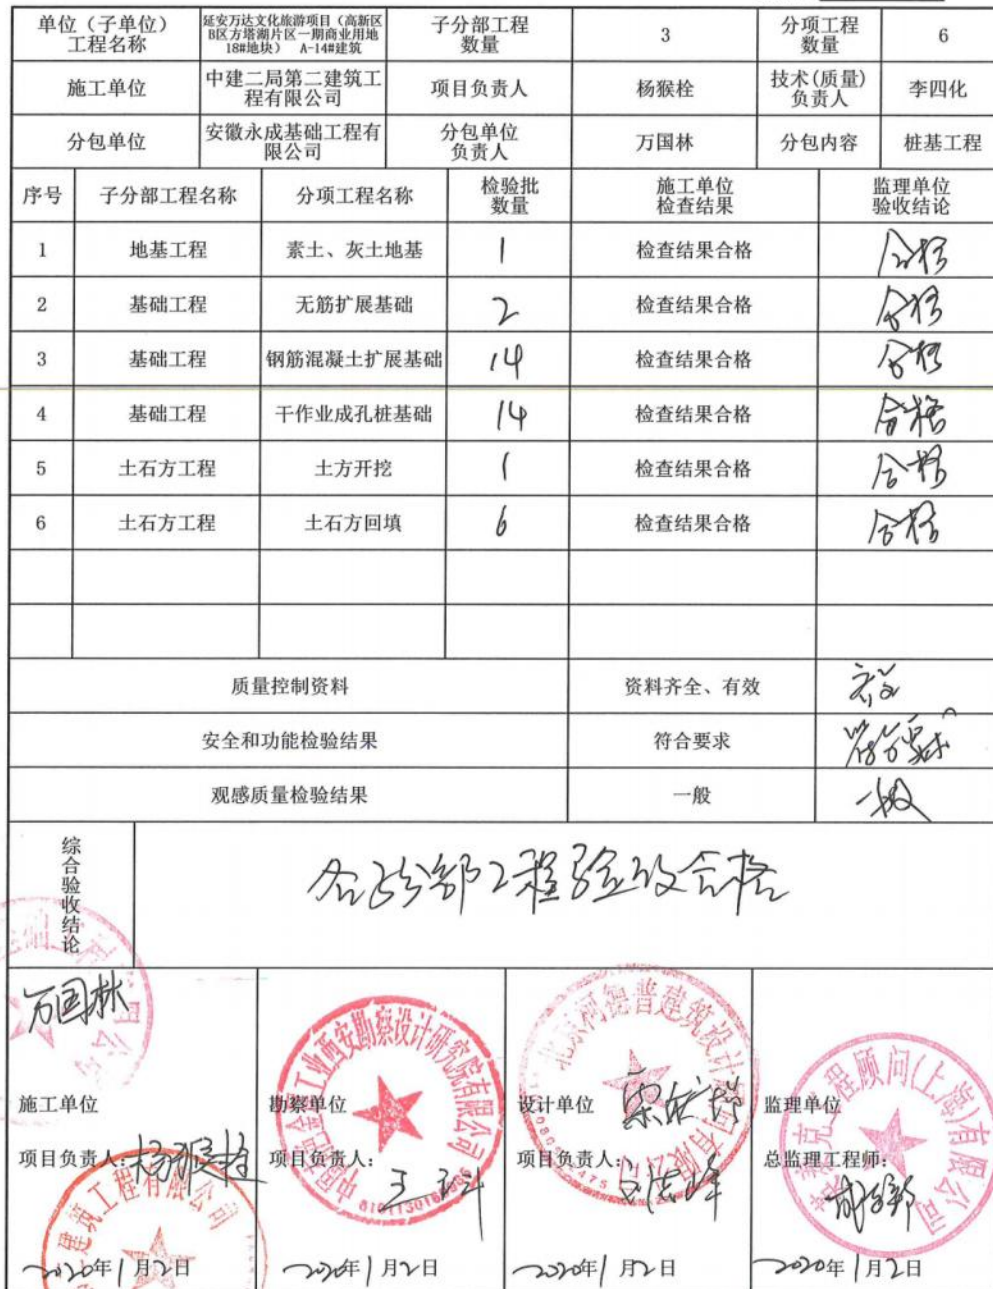 单位（子单位）
工程名称
延安万达文化旅游项目（高新区
B区方塔湖片区一期商业用地
18#地块） A-14#建筑
子分部工程
数量
3
分项工程
数量
6
施工单位
中建二局第二建筑工
程有限公司
项目负责人
杨猴栓
技术(质量)
负责人
李四化
分包单位
安徽永成基础工程有
限公司
分包单位
负责人
万国林
分包内容
桩基工程
序号
子分部工程名称
分项工程名称
检验批
数量
施工单位
检查结果
监理单位
验收结论
1 地基工程 素土、灰土地基 1 检查结果合格 合格
2 基础工程 无筋扩展基础 2 检查结果合格 合格
3 基础工程 钢筋混凝土扩展基础 14 检查结果合格 合格
4 基础工程 干作业成孔桩基础 14 检查结果合格 合格
5 土石方工程 土方开挖 1 检查结果合格 合格
6 土石方工程 土石方回填 6 检查结果合格 合格
质量控制资料 资料齐全、有效
安全和功能检验结果 符合要求 符合要求
观感质量检验结果 一般 一般
综合验收结论
分部工程验收合格
万国林
施工单位
项目负责人：杨猴栓
建筑工程有限公司
2020年1月2日
勘察单位
项目负责人：
工业西安勘察设计研究院有限公司
2020年1月2日
设计单位
项目负责人：
普建筑设计
有限
2020年1月2日
监理单位
总监理工程师：
程顾问(上海)有限公司
2020年1月2日